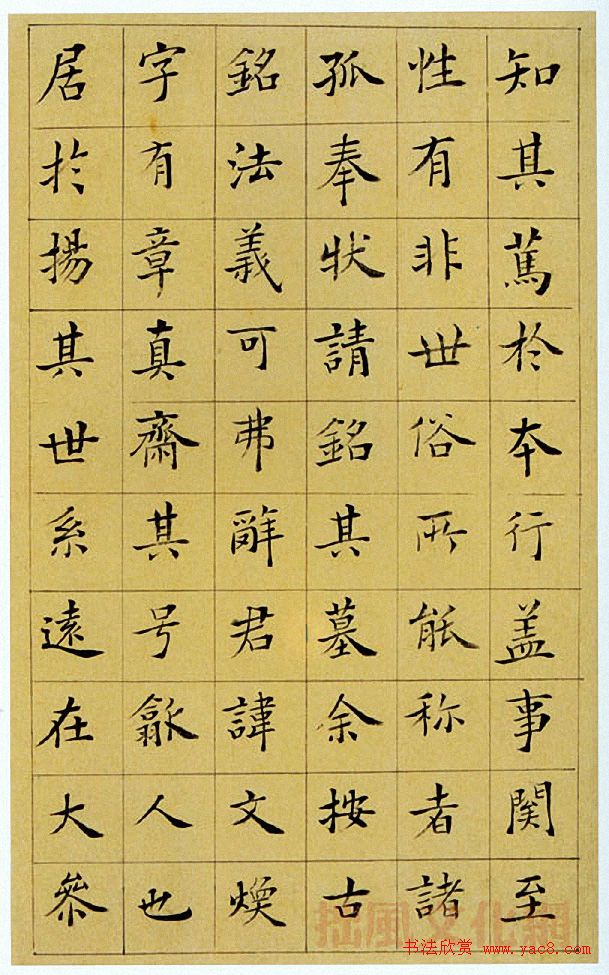 知其篤於本行盖事関至
性有非世俗所能称者諸
孤奉狀請銘其墓余按古
銘法義可弗辭君諱文煥
字有章真齋其号歙人也
居於揚其世系遠在大參
书法欣赏 www.yac8.com